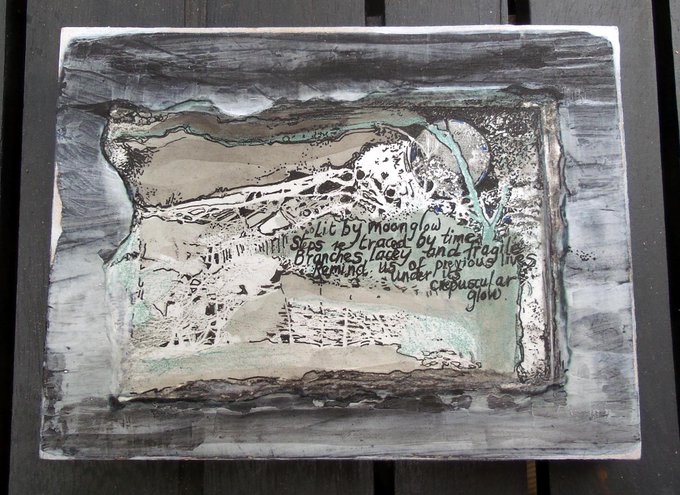 Lit by moonglow
Steps re/traced by time
Branches, lacey and fragile
Remind us of previous lives
under its
crepuscular
glow